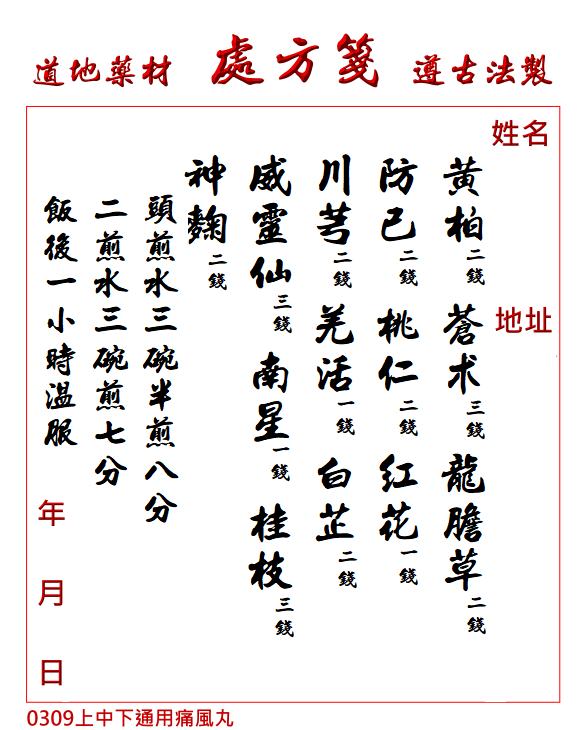 道地藥材 處方箋 遵古法製
姓名
地址
黃柏二錢 蒼术三錢 龍膽草二錢
防己二錢 桃仁二錢 紅花一錢
川芎二錢 羌活一錢 白芷二錢
威靈仙三錢 南星一錢 桂枝三錢
神麴二錢
頭煎水三碗半煎八分
二煎水三碗煎七分
飯後一小時溫服
年 月 日
0309上中下通用痛風丸